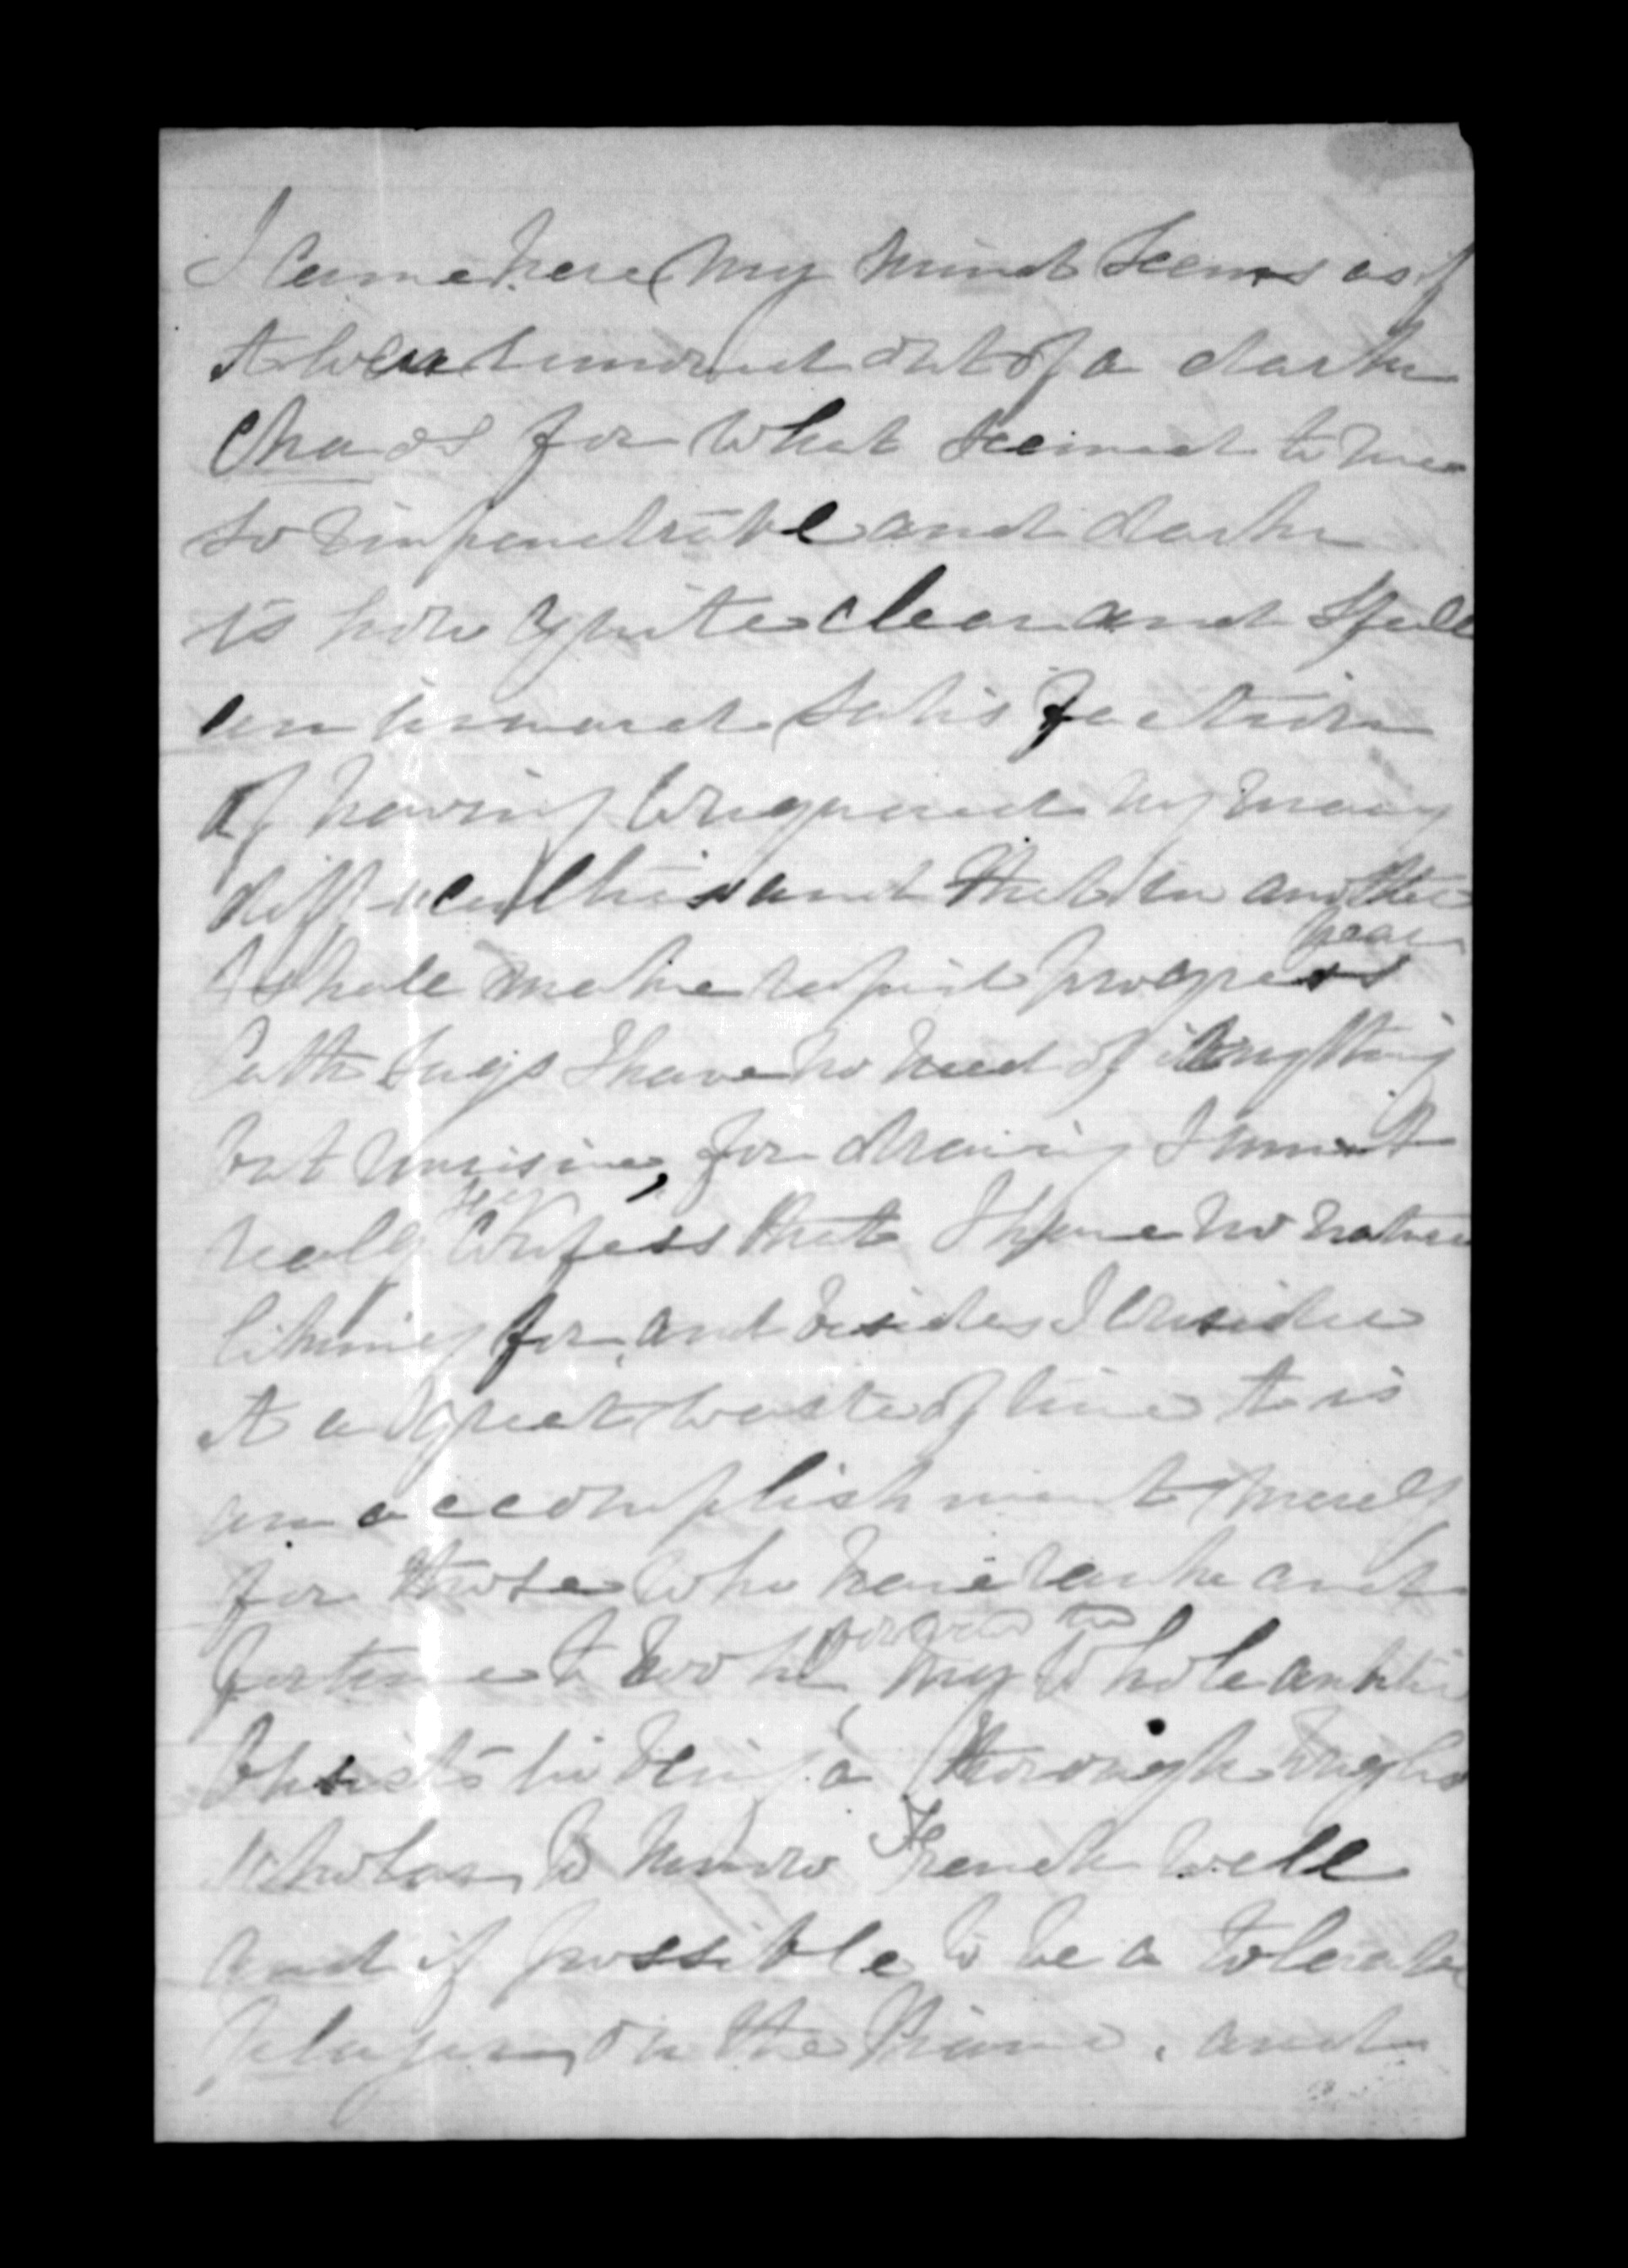 I came here my mind seems as if
it were removed out of a dark
Chaos for what seemed to me
so impenetrable and dark
is now quite clear and I feel
an inward satisfaction
Of having conquered my many
difficulties and that in another
year
I shall make rapid progress
says I have no need of anything
but music, for drawing I must
really confess that I have no natural
liking for, and besides I consider
it a great waste of time it is
an accomplishment merely
for those who have rank and
fortune to my whole ambition
Consists in being a thorough English
scholar, to know French well
and if possible to be a tolerable
player on the Piano. and